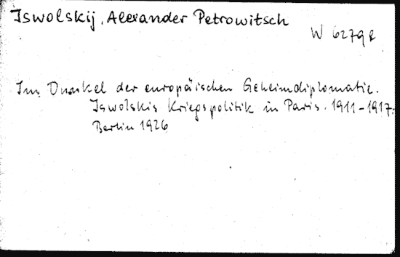 Iswolskij, Alexander Petrowitsch
W 6279e
Im Dunkel der europäischen Geheimdiplomatie.
Iswolskis Kriegspolitik in Paris. 1911-1917.
Berlin 1926